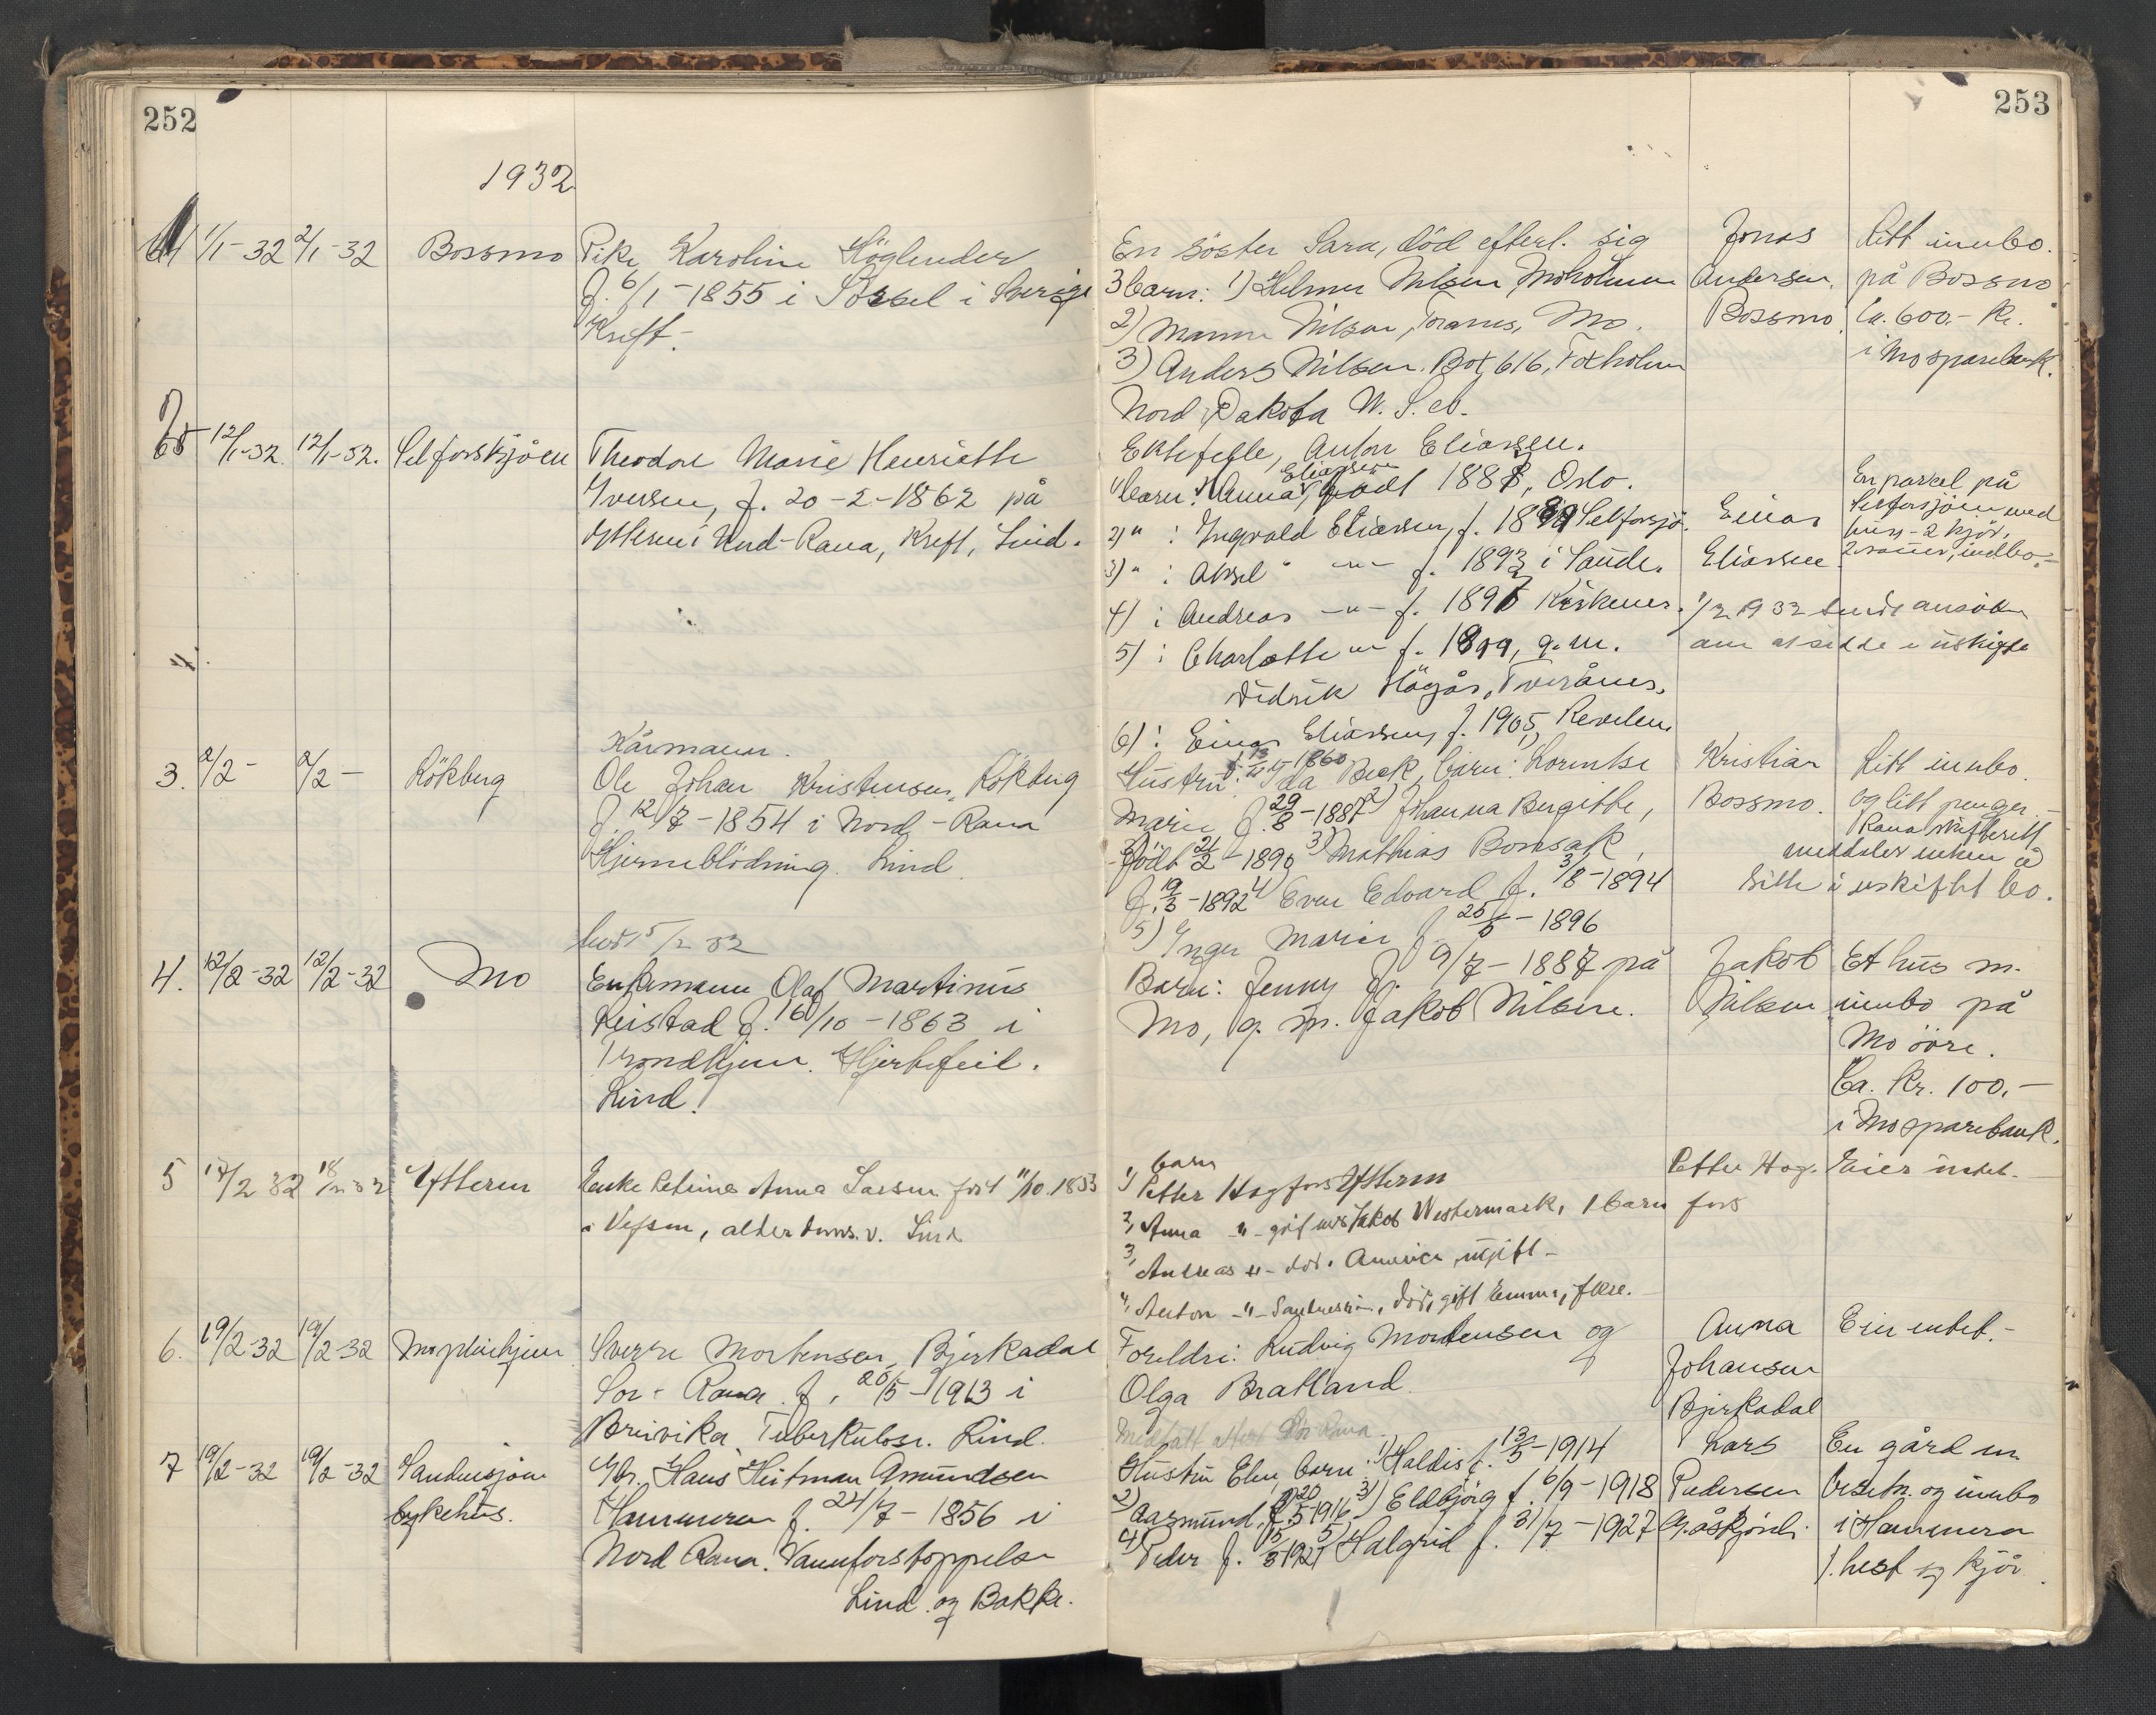 252
1932
1/1-32 2/1-32 Bossmo Pike Karoline Höglender
f. 6/1-1855 i Sorsel i Sverige
Kreft.
12/1-32. 12/1-32. Selforskjåen Theodore Marie Henriette
Iversen, f. 20-2-1862 på
Ytteren i Nord-Rana, Kreft, Lind.
Kårmann.
3. 2/2- 2/2- Rökberg Ole Johan Kristensen, Rökberg
f. 12/7-1854 i Nord-Rana
Hjerneblödning. Lind.
5/2 32
4. 12/2-32 12/2-32 Mo Enkemann Olaf Martinus
Keistad f. 16/10-1863 i
Trondhjem. Hjertefeil.
Lind.
5 17/2 32 18/2 32 Ytteren Enke Petrine Anna Larsen född 11/10 1853
i Vefsen, alderdoms.v. Lind
6. 19/2-32 19/2-32 Mopleiehjem Sverre Mortensen, Bjerkadal
Sör-Rana f. 26/5-1913 i
Breivika Tuberkulose. Lind.
7 19/2-32 19/2-32 Sandnessjøen
sykehus.
Gbr. Hans Heitman Amundsen
Hammeren f. 24/7-1856 i
Nord Rana. Vannforstoppelse
Lind. og Bakke.
253
En söster Sara, död efterl. sig
3 barn: 1) Helmer Nilsen, Moholmen
2) Manne Nilsen, Toranes, Mo.
3) Anders Nilsen. Box 616, Foxholm
Nord Dakota U.S.A.
Jonas
Andersen,
Bossmo.
Litt innbo.
på Bossmo
Ca. 600.- Kr.
i Mo sparebank.
Ektefelle, Anton Eliassen.
1) barn: Anna Eliassen, födt 1887, Oslo.
2) " : Ingvald Eliassen, f. 1889 Selforsjö.
3) " : Aksel " -"- f. 1893 i Sauda.
4) : Andreas -"- f. 1896 Kirkenes.
5) : Charlotte -"- f. 1899, g.m.
Didrik Högås, Tverånes.
6) : Einar Eliassen, f. 1905, Revelen
Einar
Eliassen
En parsel på
Selforsjöen med
hus - 2 kjör,
2 sauer, indbo.-
1/2 1932 sendt ansökn
om at sidde i uskifte
Hustru: f. 13/11 1860 Ida Beck, barn: Lorentse
Marie f. 29/8-1887 2) Johanna Bergitte,
födt 21/2-1890 3) Mathias Bonsak,
f. 19/3-1892 4) Even Edvard f. 3/8-1894
5) Inger Marie f. 25/5-1896
Kristian
Bossmo.
Litt innbo
og litt penger.-
Rana skifterett
meddeler enken å
sitte i uskiftet bo.
Barn: Jenny f. 9/7-1887 på
Mo, g. m. Jakob Nilsen.
Jakob
Nilsen
Et hus m.
innbo på
Mo öore.
Ca. Kr. 100.-
i Mo sparebank.
barn
1) Petter Hagfors Ytteren
2, Anna -"- gift med Jakob Westermark, 1 barn
3, Andreas -"- död. America, ugift -
4, Anton -"- Sandnessjöen, död, gift Emma, flere.
Petter Hag-
fors
Eier intet.-
Foreldre: Ludvig Mortensen og
Olga Bratland.
Sör Rana.
Anna
Johansen
Bjerkadal
Eier intet.-
Hustru Elen, barn: 1) Haldis f. 13/5-1914
2) Aasmund, f. 20/5 1916 3) Eldbjörg f. 6/9-1918
4) Peder f. 15/3 1921 5) Halgrid f. 31/7-1927
Lars
Pedersen
En gård m
besetn. og innbo
i Hammeren
1. hest og kjör.